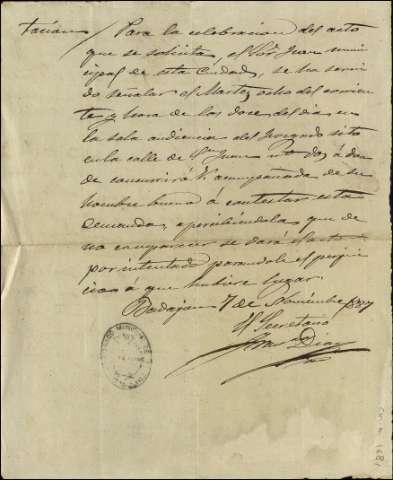 tación / Para la celebracion del acto
que se solicita, el Sor Juez muni-
cipal de esta Ciudad, se ha servi-
do señalar el Martes ocho del corrien-
te y hora de las doce del dia en
la sala audiencia del Juzgado sito
en la calle de Sn Juan nº dos, á don-
de concurrirá V. acompañada de su
hombre bueno á contestar esta
demanda, apercibiéndola que de
no comparecer se dará el acto
por intentado parandole el perjui-
cio a que hubiere lugar.
Badajoz 7 de Noviembre
El Secretario
Diaz